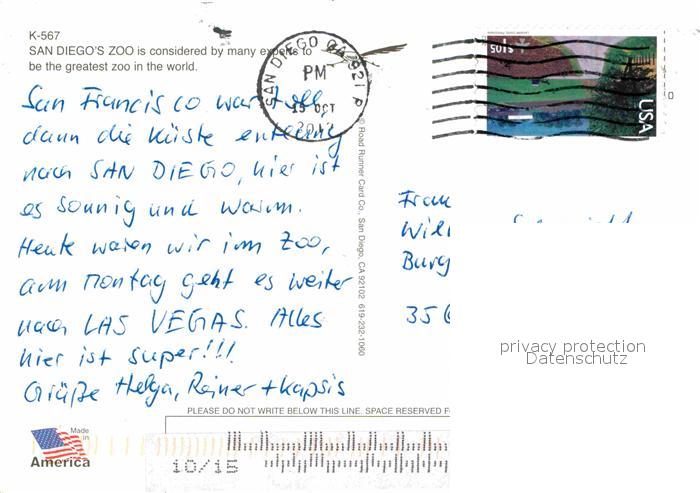 K-567
SAN DIEGO'S ZOO is considered by many experts to
be the greatest zoo in the world.
SAN DIEGO CA 921
PM
15 OCT
San Francisco war toll,
dann die Küste entlang
nach SAN DIEGO, hier ist
es sonnig und warm.
Heute waren wir im Zoo,
am Montag geht es weiter
nach LAS VEGAS. Alles
hier ist super!!!
Grüße Helga, Reiner + Kapsis
© Road Runner Card Co., San Diego, CA 92102 619-232-1060
$1.05
USA
0
Frau
Burg
35
privacy protection
Datenschutz
PLEASE DO NOT WRITE BELOW THIS LINE. SPACE RESERVED F
Made
in
America
10/15